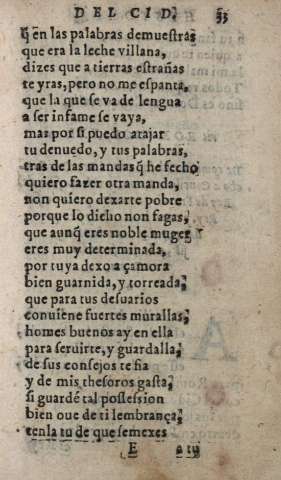 DEL CID. 33
q̃ en las palabras demuestras
que era la leche villana,
dizes que a tierras estrañas
te yras, pero no me espanta,
que la que se va de lengua
a ser infame se vaya,
mas por si puedo atajar
tu denuedo, y tus palabras,
tras de las mandas q̃ he fecho
quiero fazer otra manda,
non quiero dexarte pobre
porque lo dicho non fagas,
que aunq̃ eres noble muger
eres muy determinada,
por tuya dexo a çamora
bien guarnida, y torreada,
que para tus desuarios
conuiene fuertes murallas,
homes buenos ay en ella
para seruirte, y guardalla,
de sus consejos te fia
y de mis thesoros gasta,
si guardé tal possession
bien oue de ti lembrança,
tenla tu de que semexes
E a tu